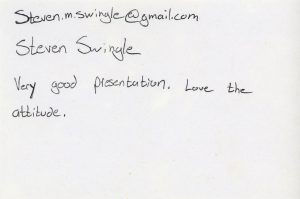 Steven.m.swingle@gmail.com
Steven Swingle
Very good presentation. Love the
attitude.